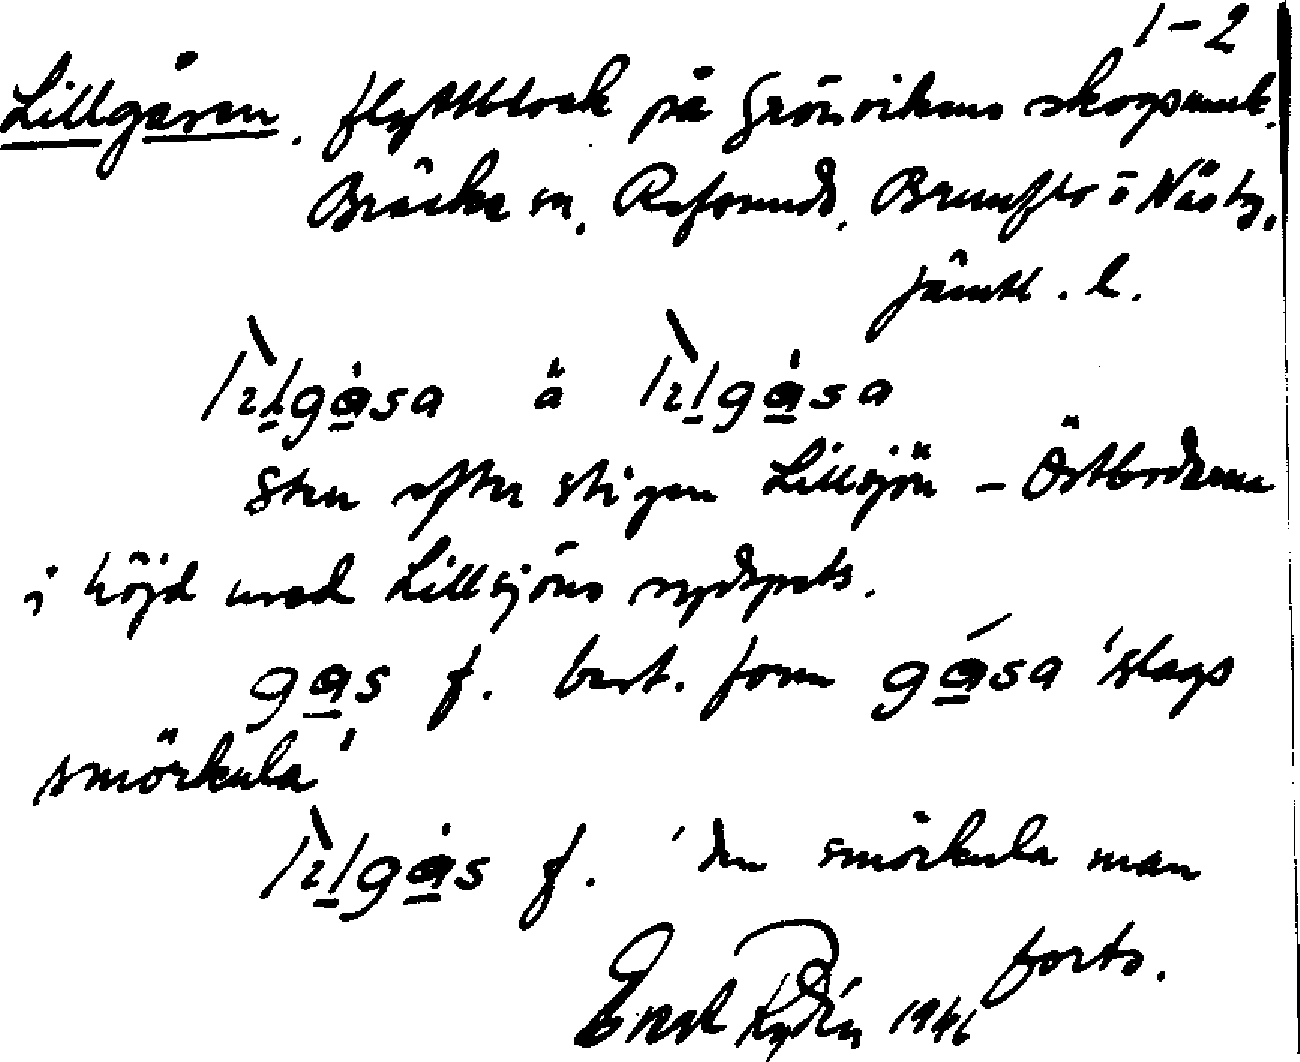 1-2
Lillgåsen. flyttblock på Grönvikens skogsmark.
Bräcke sn. Refsunds, Brunflo o Näs tg.
Jämtl. l.
lìlgåsa ä lìlgåsa
Sten efter stigen Lillsjön - Östbodarna
i höjd med Lillsjöns sydspets.
gås f. best. form gåsa 'slags
smörkula'
lìlgås f. 'den smörkula man
forts.
1946